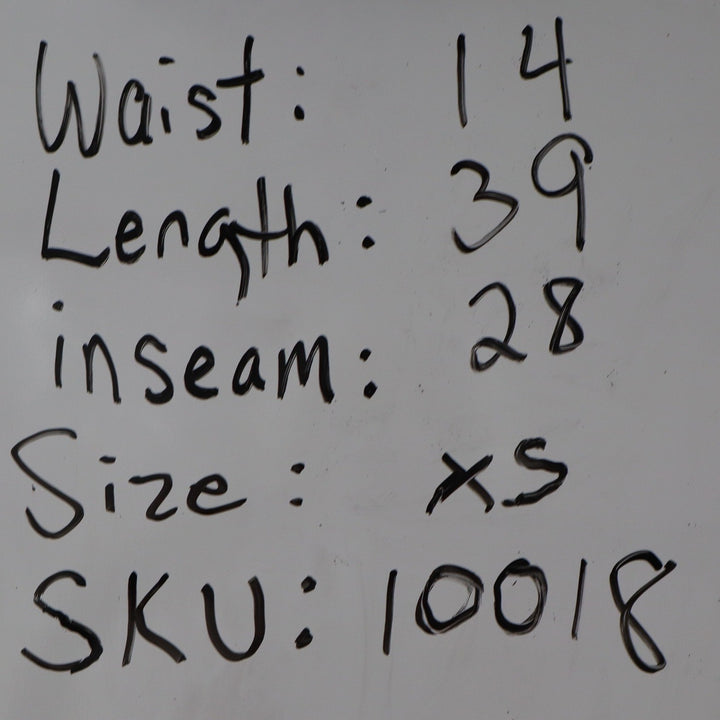 Waist: 14
Length: 39
inseam: 28
Size: xs
SKU: 10018